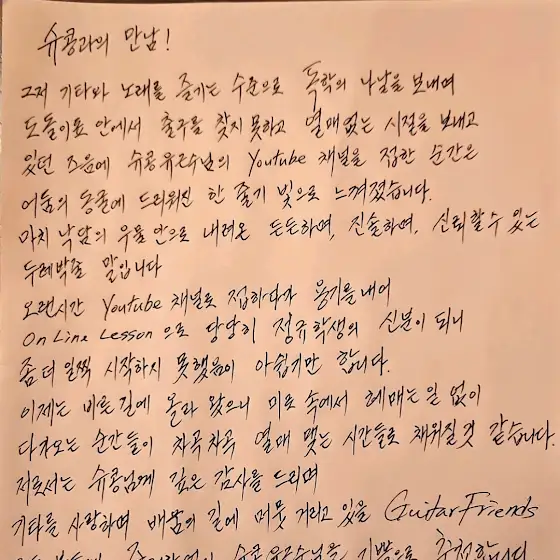 슈콩과의 만남!
그저 기타와 노래를 즐기는 수준으로 독학의 나날을 보내며
도돌이표 안에서 출구를 찾지 못하고 열매 없는 시절을 보내고
있던 즈음에 슈콩유근수님의 Youtube 채널을 접한 순간은
어둠의 동굴에 드리워진 한 줄기 빛으로 느껴졌습니다.
마치 낙담의 우물 안으로 내려온 든든하며, 진솔하며, 신뢰할 수 있는
두레박줄 말입니다
오랜시간 Youtube 채널로 접하다가 용기를 내어
On Line Lesson 으로 당당히 정규학생의 신분이 되니
좀 더 일찍 시작하지 못했음이 아쉽기만 합니다.
이제는 바른 길에 올라 왔으니 미로 속에서 헤매는 일 없이
다가오는 순간들이 차곡차곡 열매 맺는 시간들로 채워질 것 같습니다.
저로서는 슈콩님께 깊은 감사를 드리며
기타를 사랑하며 배움의 길에 머뭇 거리고 있을 Guitar Friends